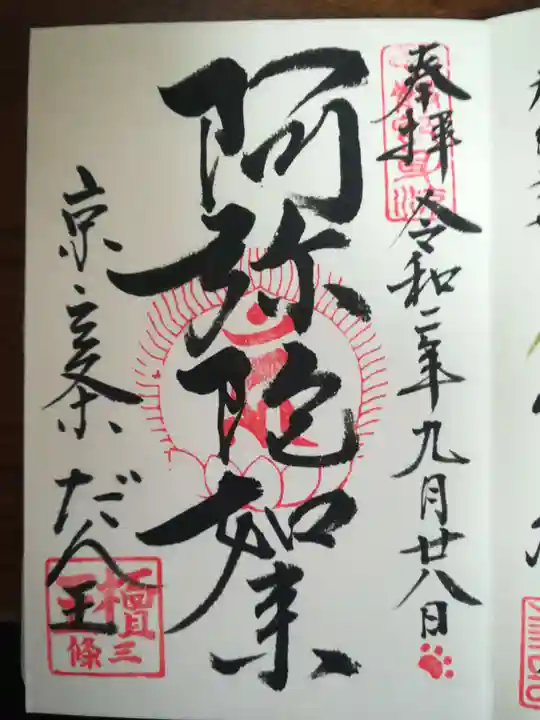 奉拝 令和二年九月廿八日
阿弥陀如来
京三条だん王
檀王
三條